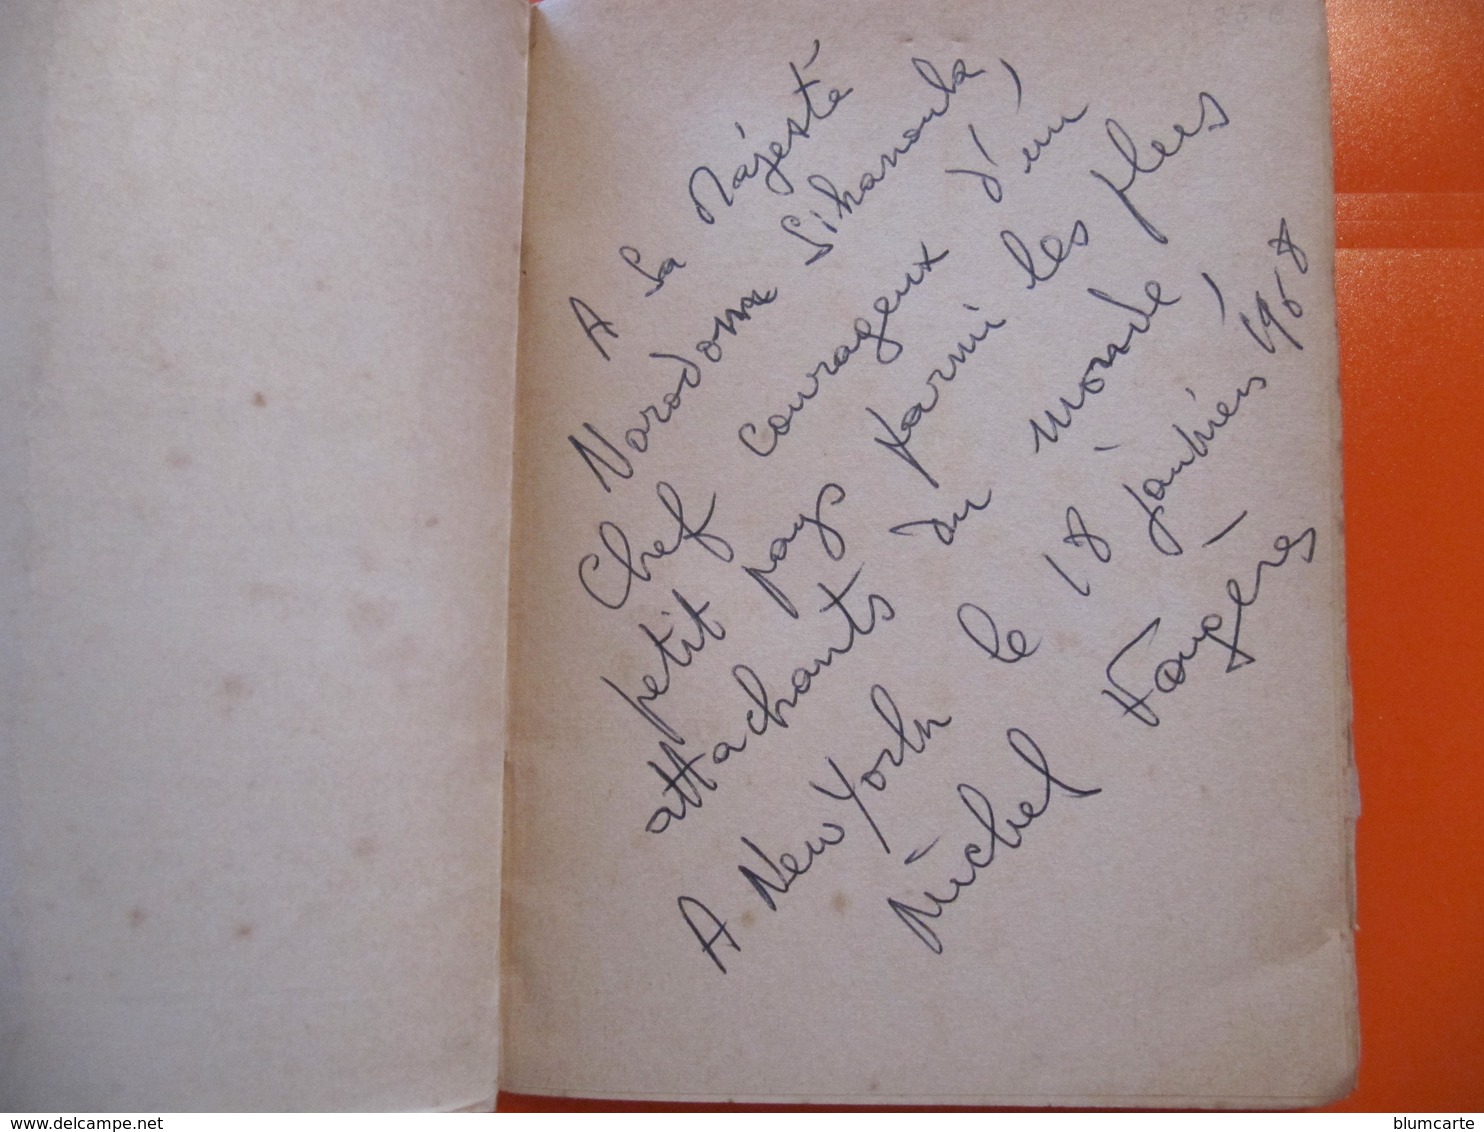 A Sa Majesté
Norodom Sihanouk,
Chef courageux d'un
petit pays parmi les plus
attachants du monde,
A New York le 18 janvier 1968
Michel Fougères
25 €
blumcarte